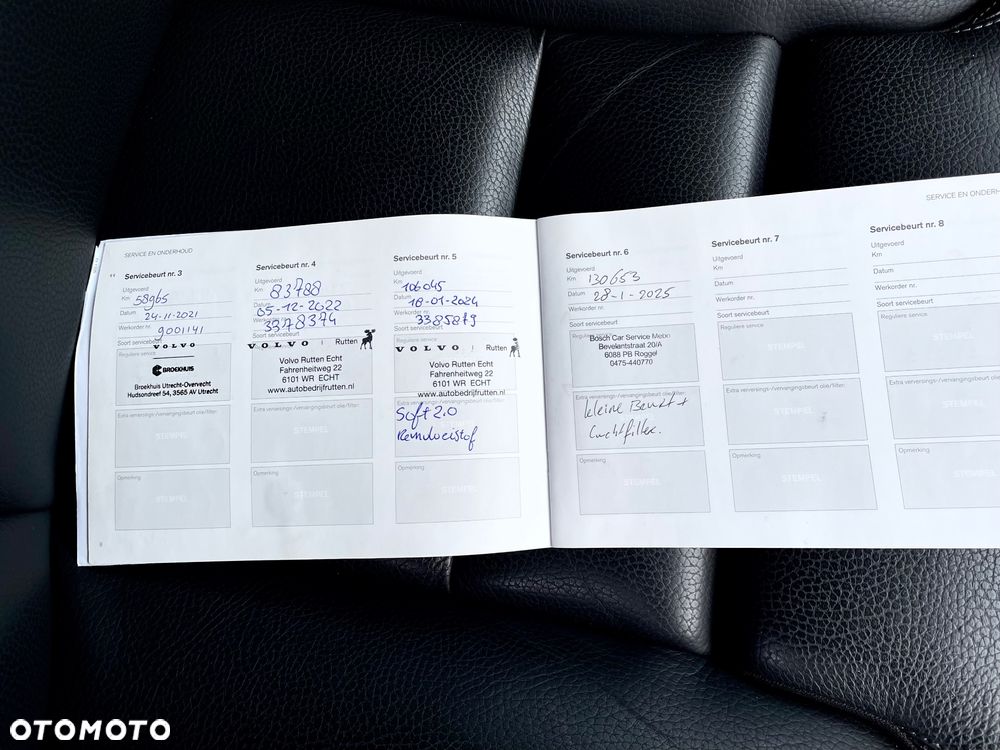 SERVICE EN ONDERHOUD
Servicebeurt nr. 3
Uitgevoerd
Km 58965
Datum 24-11-2021
Werkorder nr. 9001141
Soort servicebeurt
Reguliere service
VOLVO
BROEKHUIS
Broekhuis Utrecht-Overvecht
Hudsondreef 54, 3565 AV Utrecht
Extra verversings-/vervangingsbeurt olie/filter:
STEMPEL
Opmerking
STEMPEL
8
Servicebeurt nr. 4
Uitgevoerd
Km 83788
Datum 05-12-2022
Werkorder nr. 3378374
Soort servicebeurt
VOLVO | Rutten
Volvo Rutten Echt
Fahrenheitweg 22
6101 WR ECHT
www.autobedrijfrutten.nl
Extra verversings-/vervangingsbeurt olie/filter:
STEMPEL
Opmerking
STEMPEL
Servicebeurt nr. 5
Uitgevoerd
Km 106045
Datum 18-01-2024
Werkorder nr. 3385879
Soort servicebeurt
VOLVO | Rutten
Volvo Rutten Echt
Fahrenheitweg 22
6101 WR ECHT
www.autobedrijfrutten.nl
Extra verversings-/vervangingsbeurt olie/filter:
Soft 2.0
Remvloeistof
Opmerking
STEMPEL
Servicebeurt nr. 6
Uitgevoerd
Km 130653
Datum 28-1-2025
Werkorder nr.
Soort servicebeurt
Bosch Car Service Mebo
Bevelantstraat 20/A
6088 PB Roggel
0475-440770
Extra verversings-/vervangingsbeurt olie/filter:
kleine Beurt +
Luchtfilter.
Opmerking
STEMPEL
Servicebeurt nr. 7
Uitgevoerd
Km
Datum
Werkorder nr.
Soort servicebeurt
Reguliere service
STEMPEL
Extra verversings-/vervangingsbeurt olie/filter:
STEMPEL
Opmerking
STEMPEL
SERVICE EN ONDERH
Servicebeurt nr. 8
Uitgevoerd
Km
Datum
Werkorder nr.
Soort servicebeurt
Reguliere service
STEMPEL
Extra verversings-/vervangingsbeurt olie/filter:
STEMPEL
Opmerking
STEMPEL
OTOMOTO